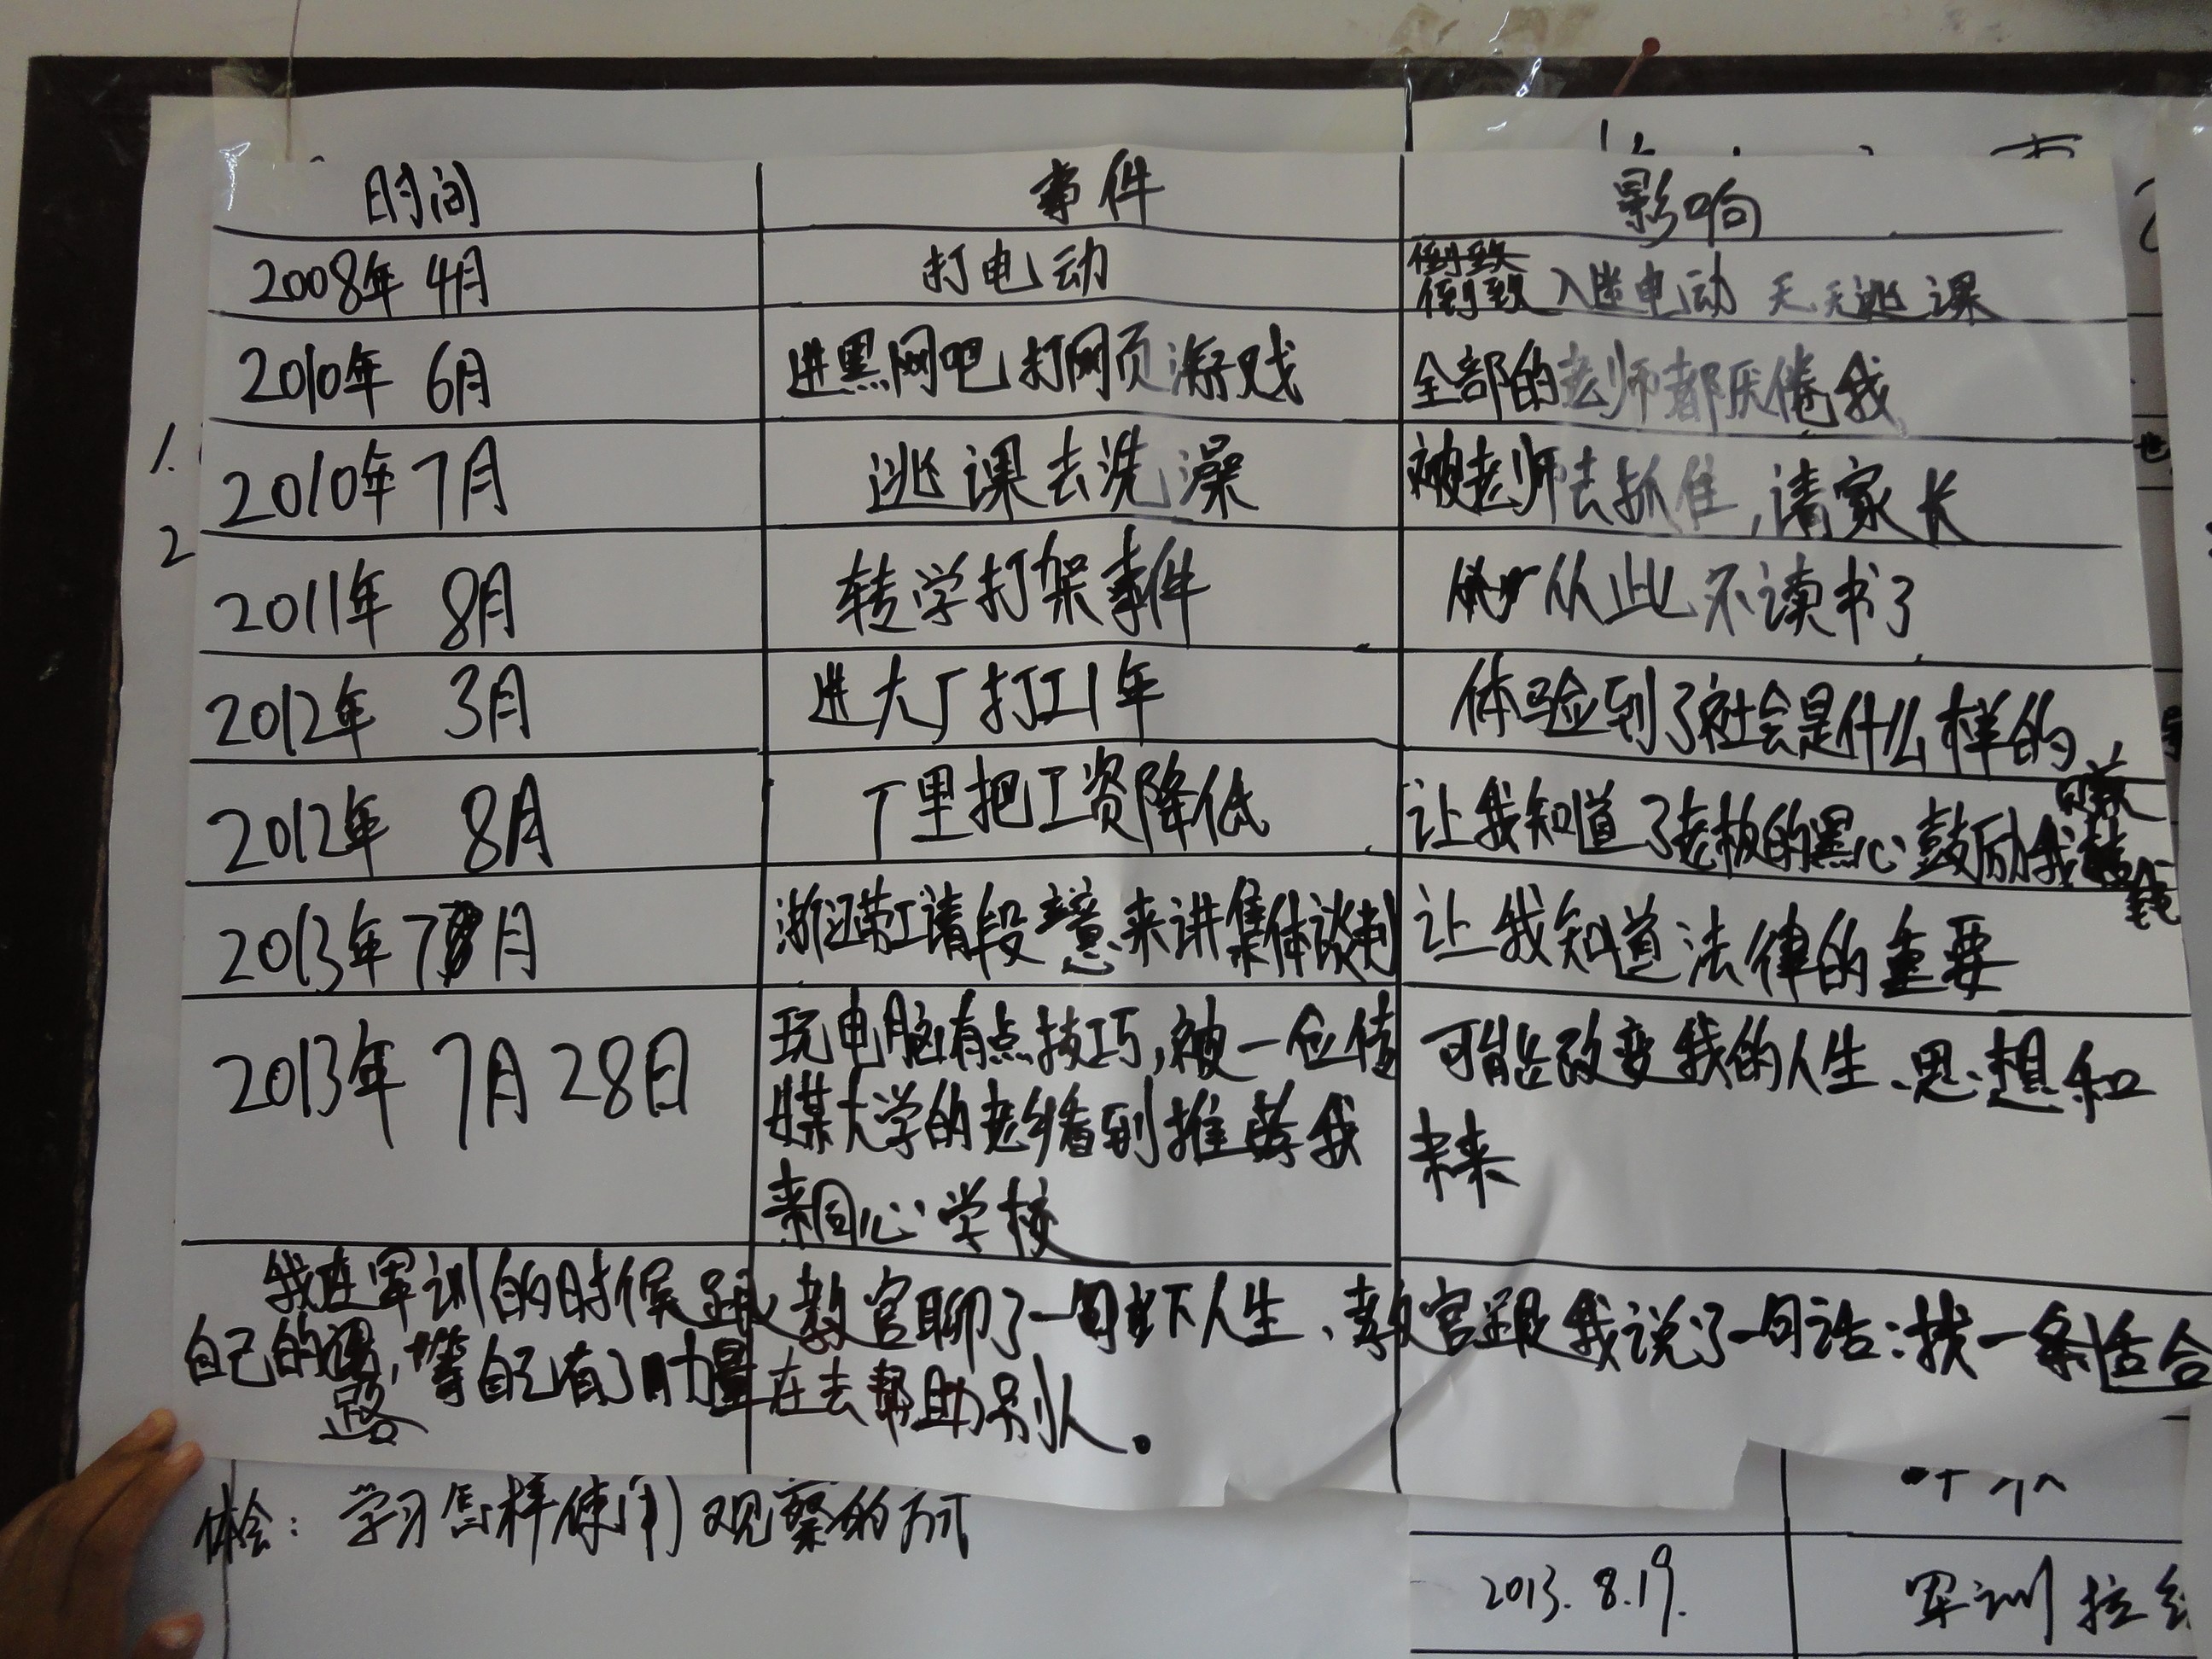 时间 事件 影响
2008年 4月 打电动 倒致
倒致 入迷电动 天天逃课
2010年 6月 进黑网吧打网页游戏 全部的老师都厌倦我
2010年7月 逃课去洗澡 被老师去抓住,请家长
2011年 8月 转学打架事件 从此不读书了
2012年 3月 进大厂打工1年 体验到了社会是什么样的
2012年 8月 厂里把工资降低 让我知道了老板的黑心鼓励我赚
钱
2013年7月 浙江劳工请段意来讲集体谈判 让我知道法律的重要
2013年 7月28日 玩电脑有点技巧,被一位传
媒大学的老乡看到推荐我
来同心学校
可能改变我的人生、思想和
未来
我在军训的时候跟教官聊了一下人生、教官跟我说了一句话:找一条适合
自己的路,等自己有了力量在去帮助别人。
体会: 学习怎样使用观察的方式
1.
2
2013.8.19. 军训拉